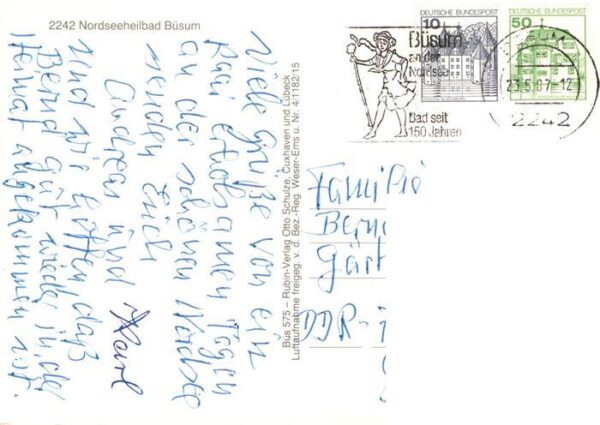 2242 Nordseeheilbad Büsum
Viele Grüße von ein
paar erholsamen Tagen
an der schönen Nordsee
senden Euch
Andreas und
Karl
Und wir hoffen, daß
Bernd gut wieder in der
Heimat angekommen ist.
Büs 575 – Rubin-Verlag Otto Schulze, Cuxhaven und Lübeck
Luftaufnahme freigeg. v. d. Bez.-Reg. Weser-Ems u. Nr. 4/1182/15
Büsum
an der
Nordsee
Bad seit
150 Jahren
DEUTSCHE BUNDESPOST
10
DEUTSCHE BUNDESPOST
50
23.5.87-12
2242
Familie
Bern
Gärt
DDR-